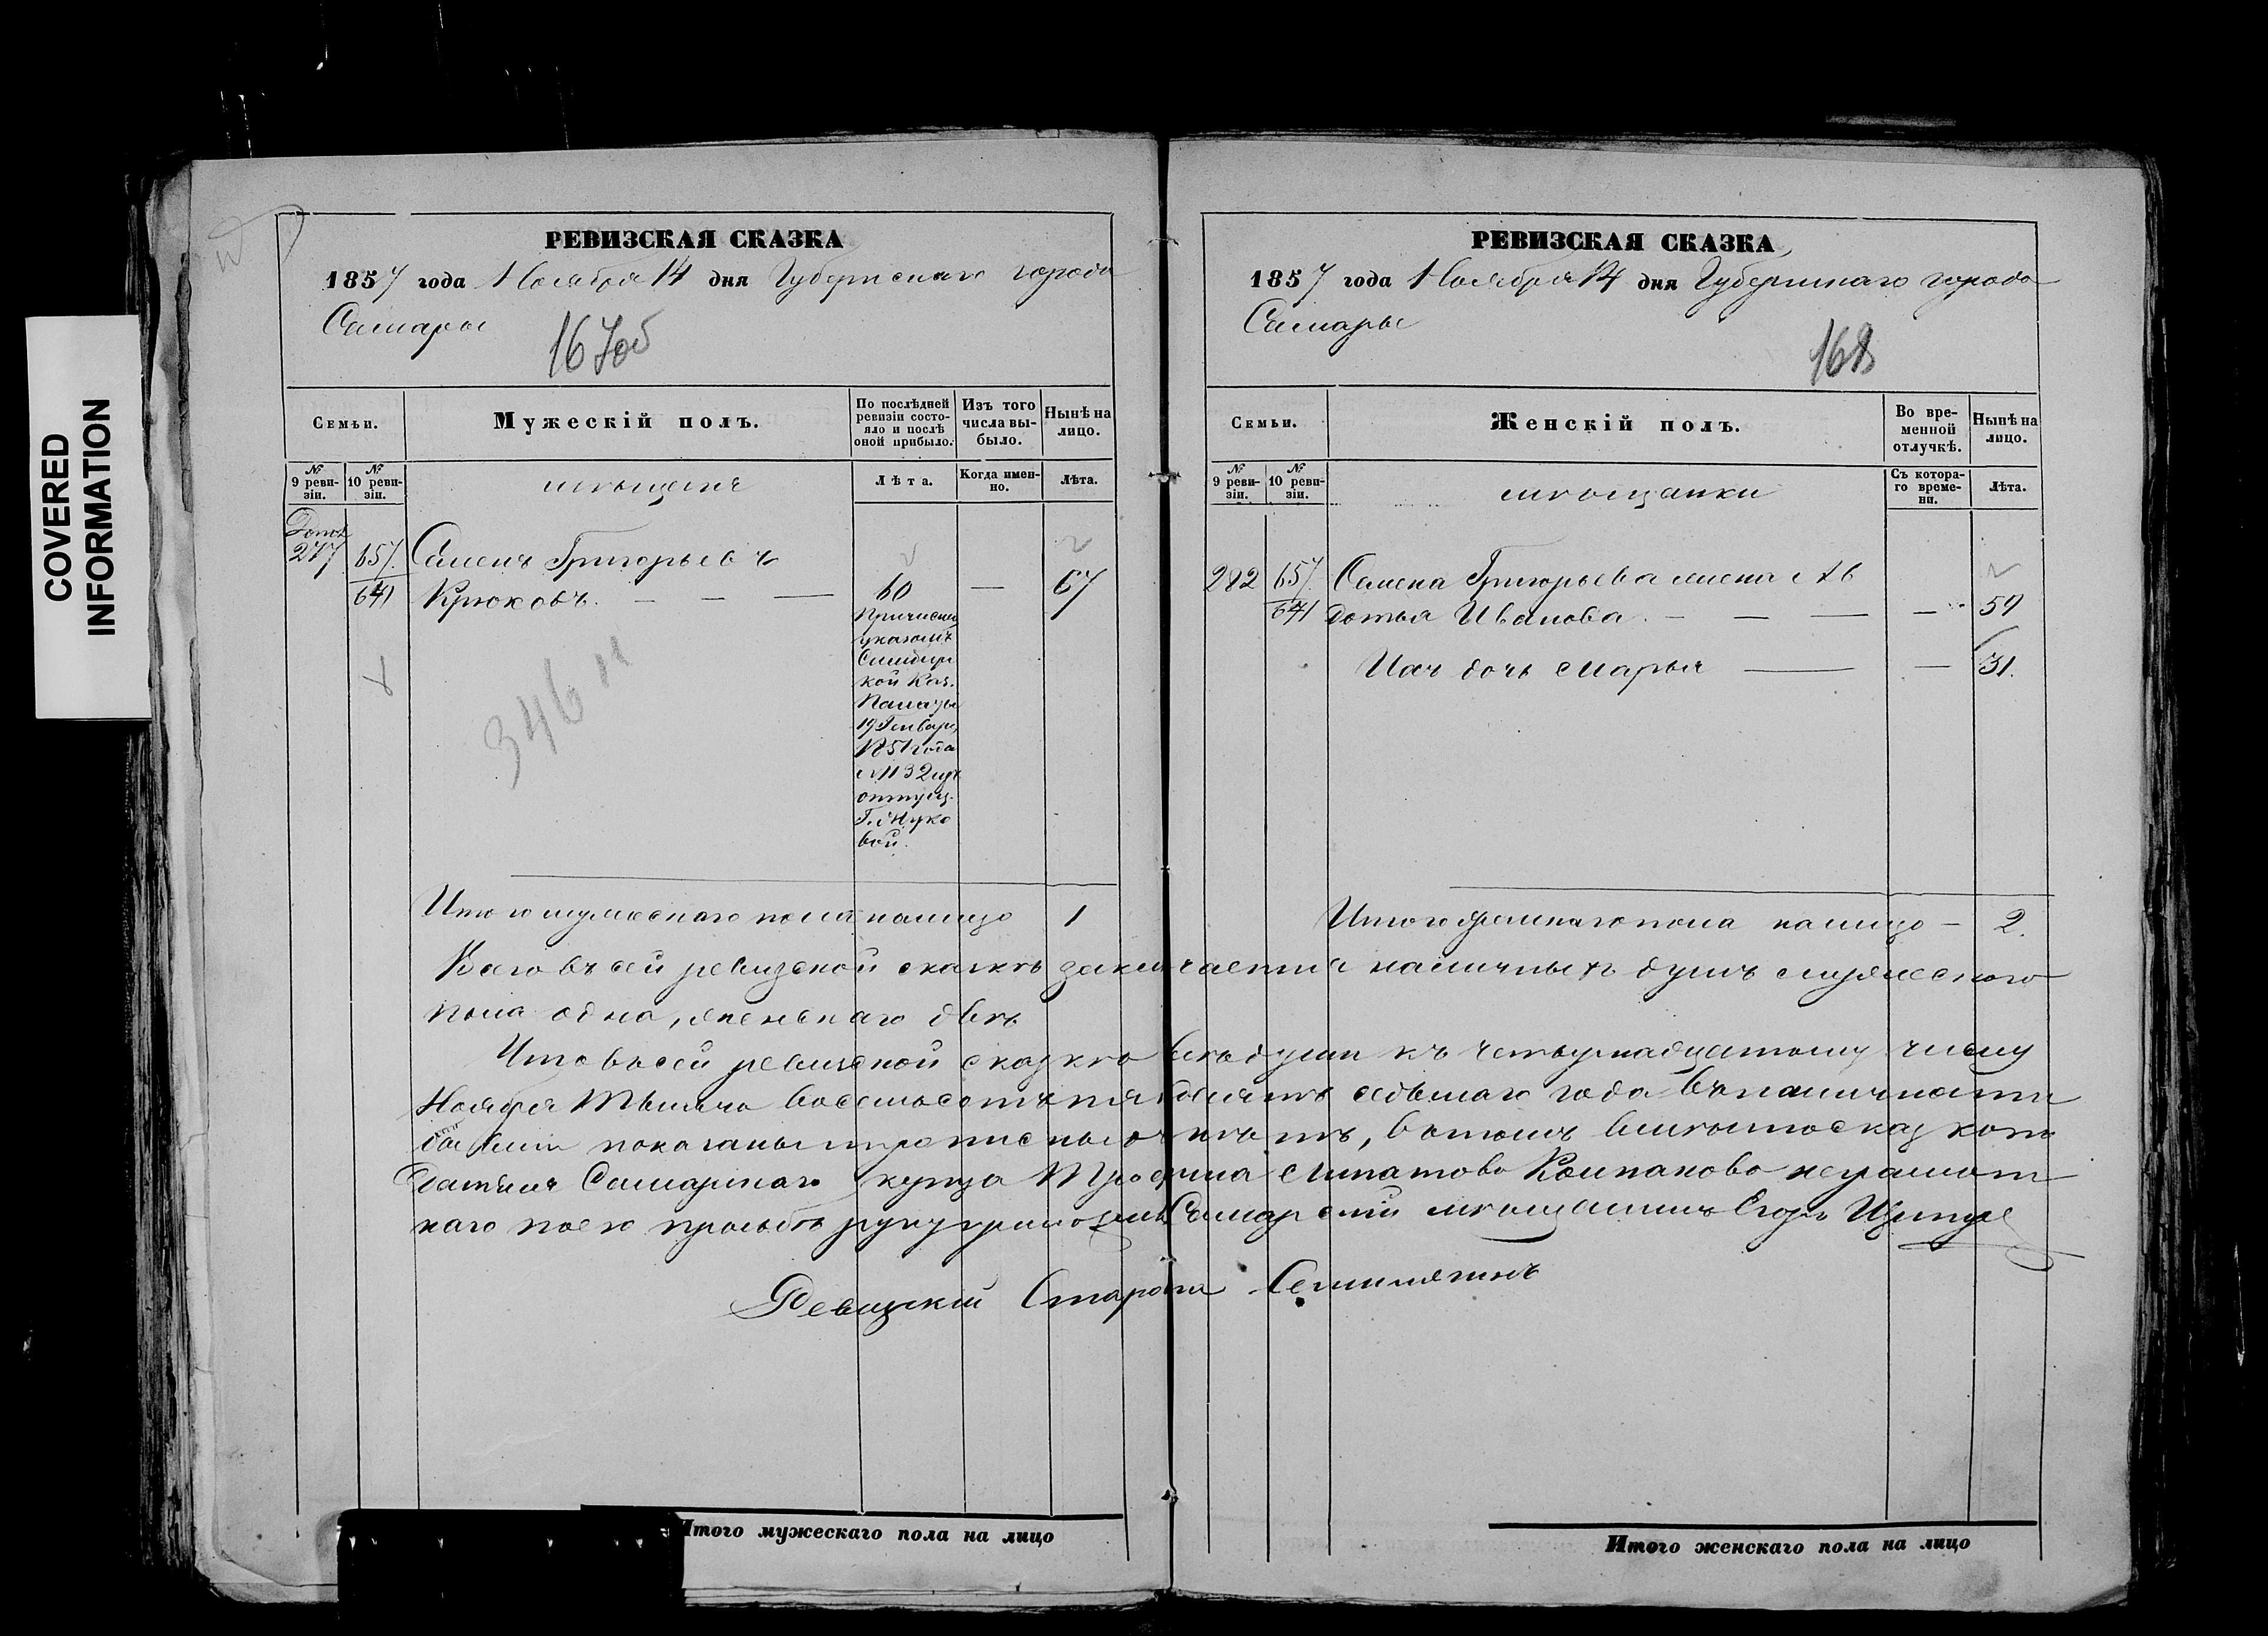 COVERED
INFORMATION
РЕВИЗСКАЯ СКАЗКА
1857 года Ноября 14 дня Губернскаго города
Самары
167об
Семьи.
Мужескій полъ.
По послѣдней ревизіи состо-
яло и послѣ
оной прибыло.
Изъ того
числа вы-
было.
Нынѣ на
лицо.
№
9 реви-
зіи.
№
10 реви-
зіи.
мѣщане
Лѣта.
Когда имен-
но.
Лѣта.
277
657
641
Семенъ Григорьевъ
Крюковъ. — — — 60 — 67
Причислен
указомъ
Симбир
кой Каз.
Палаты
19 Генваря
1851 года
№ 132 изъ
отпущ.
346
Итого мужескаго пола налицо 1
РЕВИЗСКАЯ СКАЗКА
1857 года Ноября 14 дня Губернскаго города
Самары
168
Семьи.
Женскій полъ.
Во вре-
менной
отлучкѣ.
Нынѣ на
лицо.
№
9 реви-
зіи.
№
10 реви-
зіи.
мѣщанки
Съ котора-
го време-
ни.
Лѣта.
282
657
641
Семена Григорьева жена Ав
дотья Иванова. — — — — 59
Ихъ дочь Марья — — 31.
Итого женскаго пола налицо — 2.
Всего въ сей ревизской сказкѣ заключается наличныхъ душъ мужескаго
пола одна, женскаго двѣ
Что въ сей ревизской сказкѣ всѣ души къ четырнадцатому числу
Ноября Тысяча восемьсотъ пятьдесятъ седьмаго года въ наличности
показаны и прописныхъ нѣтъ, въ томъ вмѣсто сказкопо
дателя Самарскаго купца Трофима Ипатова Колпакова неграмот
наго по его прозьбѣ руку приложилъ Самарскій мѣщанинъ Егоръ
Ревизскій Староста
Итого мужескаго пола на лицо
Итого женскаго пола на лицо